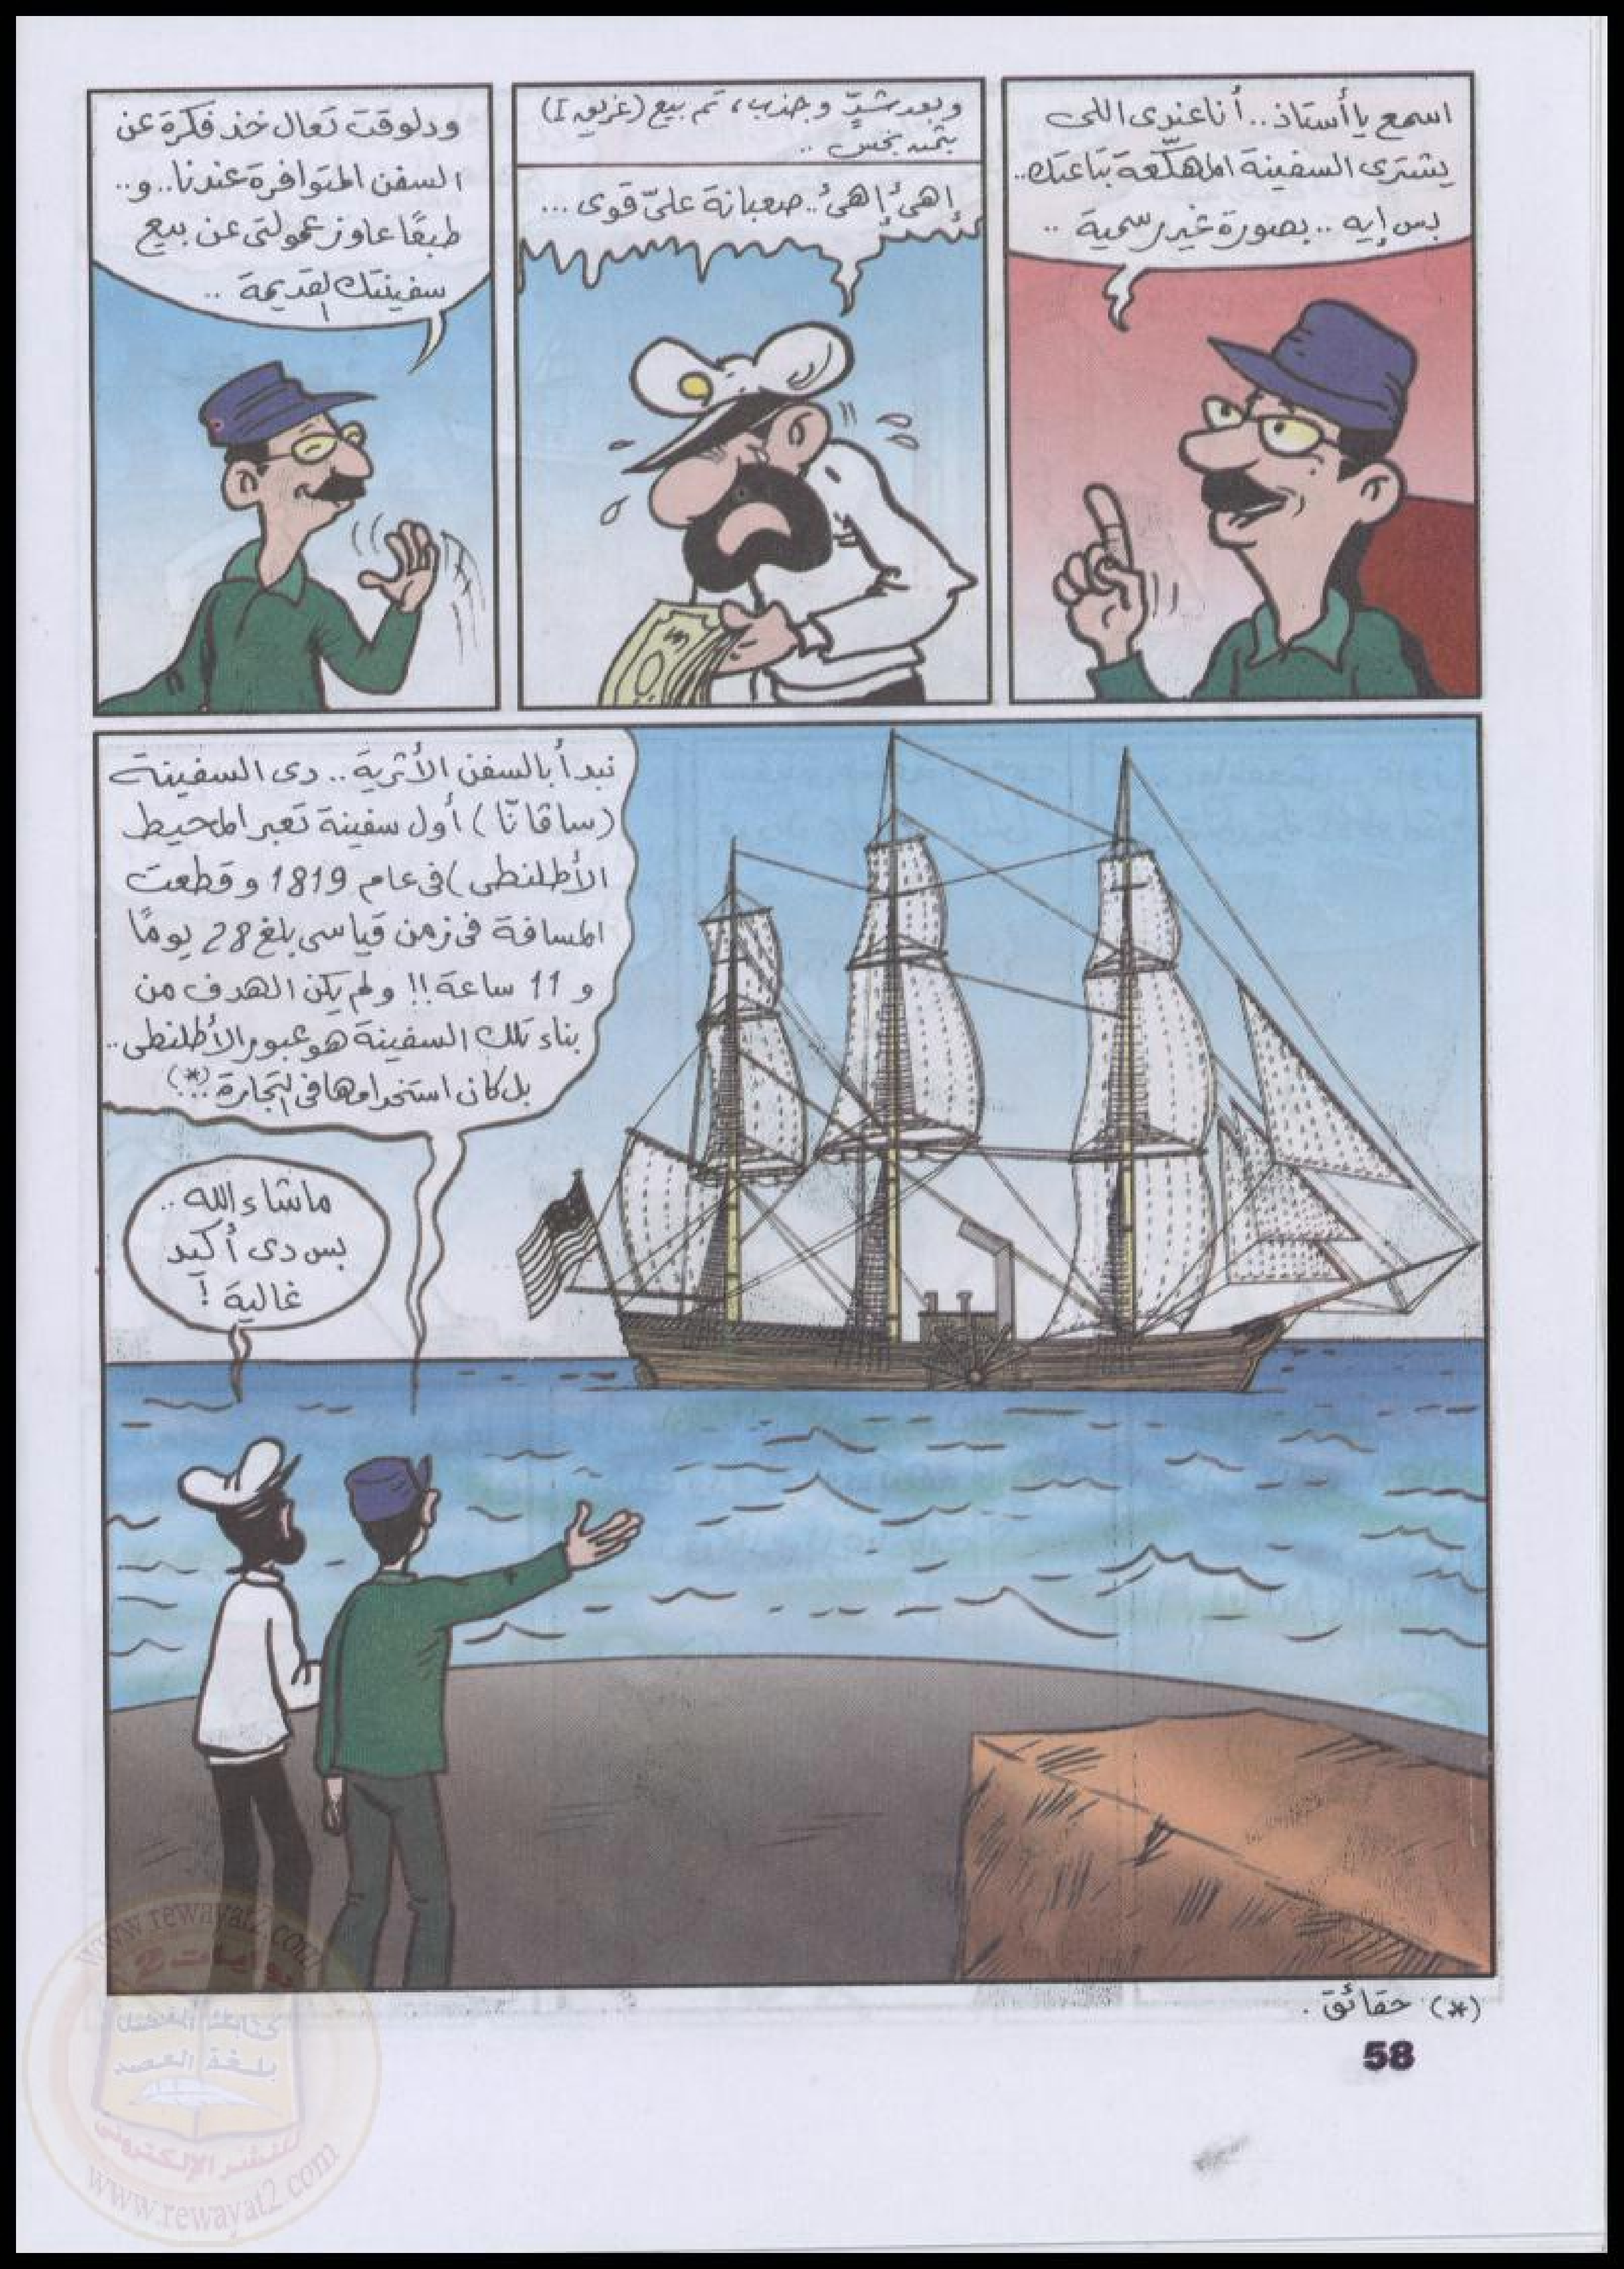 اسمع يا أستاذ.. أنا عندى اللى
يشترى السفينة المهكّعة بتاعتك..
بس إيه .. بصورة غير رسمية ..
وبعد شدٍّ وجذب، تم بيع (غريق I)
بثمن بخس ..
إهئ إهئ.. صعبانة علىّ قوى ...
ودلوقت تعال خذ فكرة عن
السفن المتوافرة عندنا.. و..
طبعًا عاوز عمولتى عن بيع
سفينتك القديمة ..
نبدأ بالسفن الأثرية.. دى السفينة
(ساقانّا) أول سفينة تعبر المحيط
الأطلنطى) فى عام 1819 وقطعت
المسافة فى زمن قياسى بلغ 28 يومًا
و 11 ساعة!! ولم يكن الهدف من
بناء تلك السفينة هو عبور الأطلنطى..
بل كان استخدامها فى التجارة..(*)
ما شاء الله ..
بس دى أكيد
غالية !
(*) حقائق .
58
www.rewayat2.com
روايات 2
بلغة العصر
للنشر الإلكترونى
www.rewayat2.com